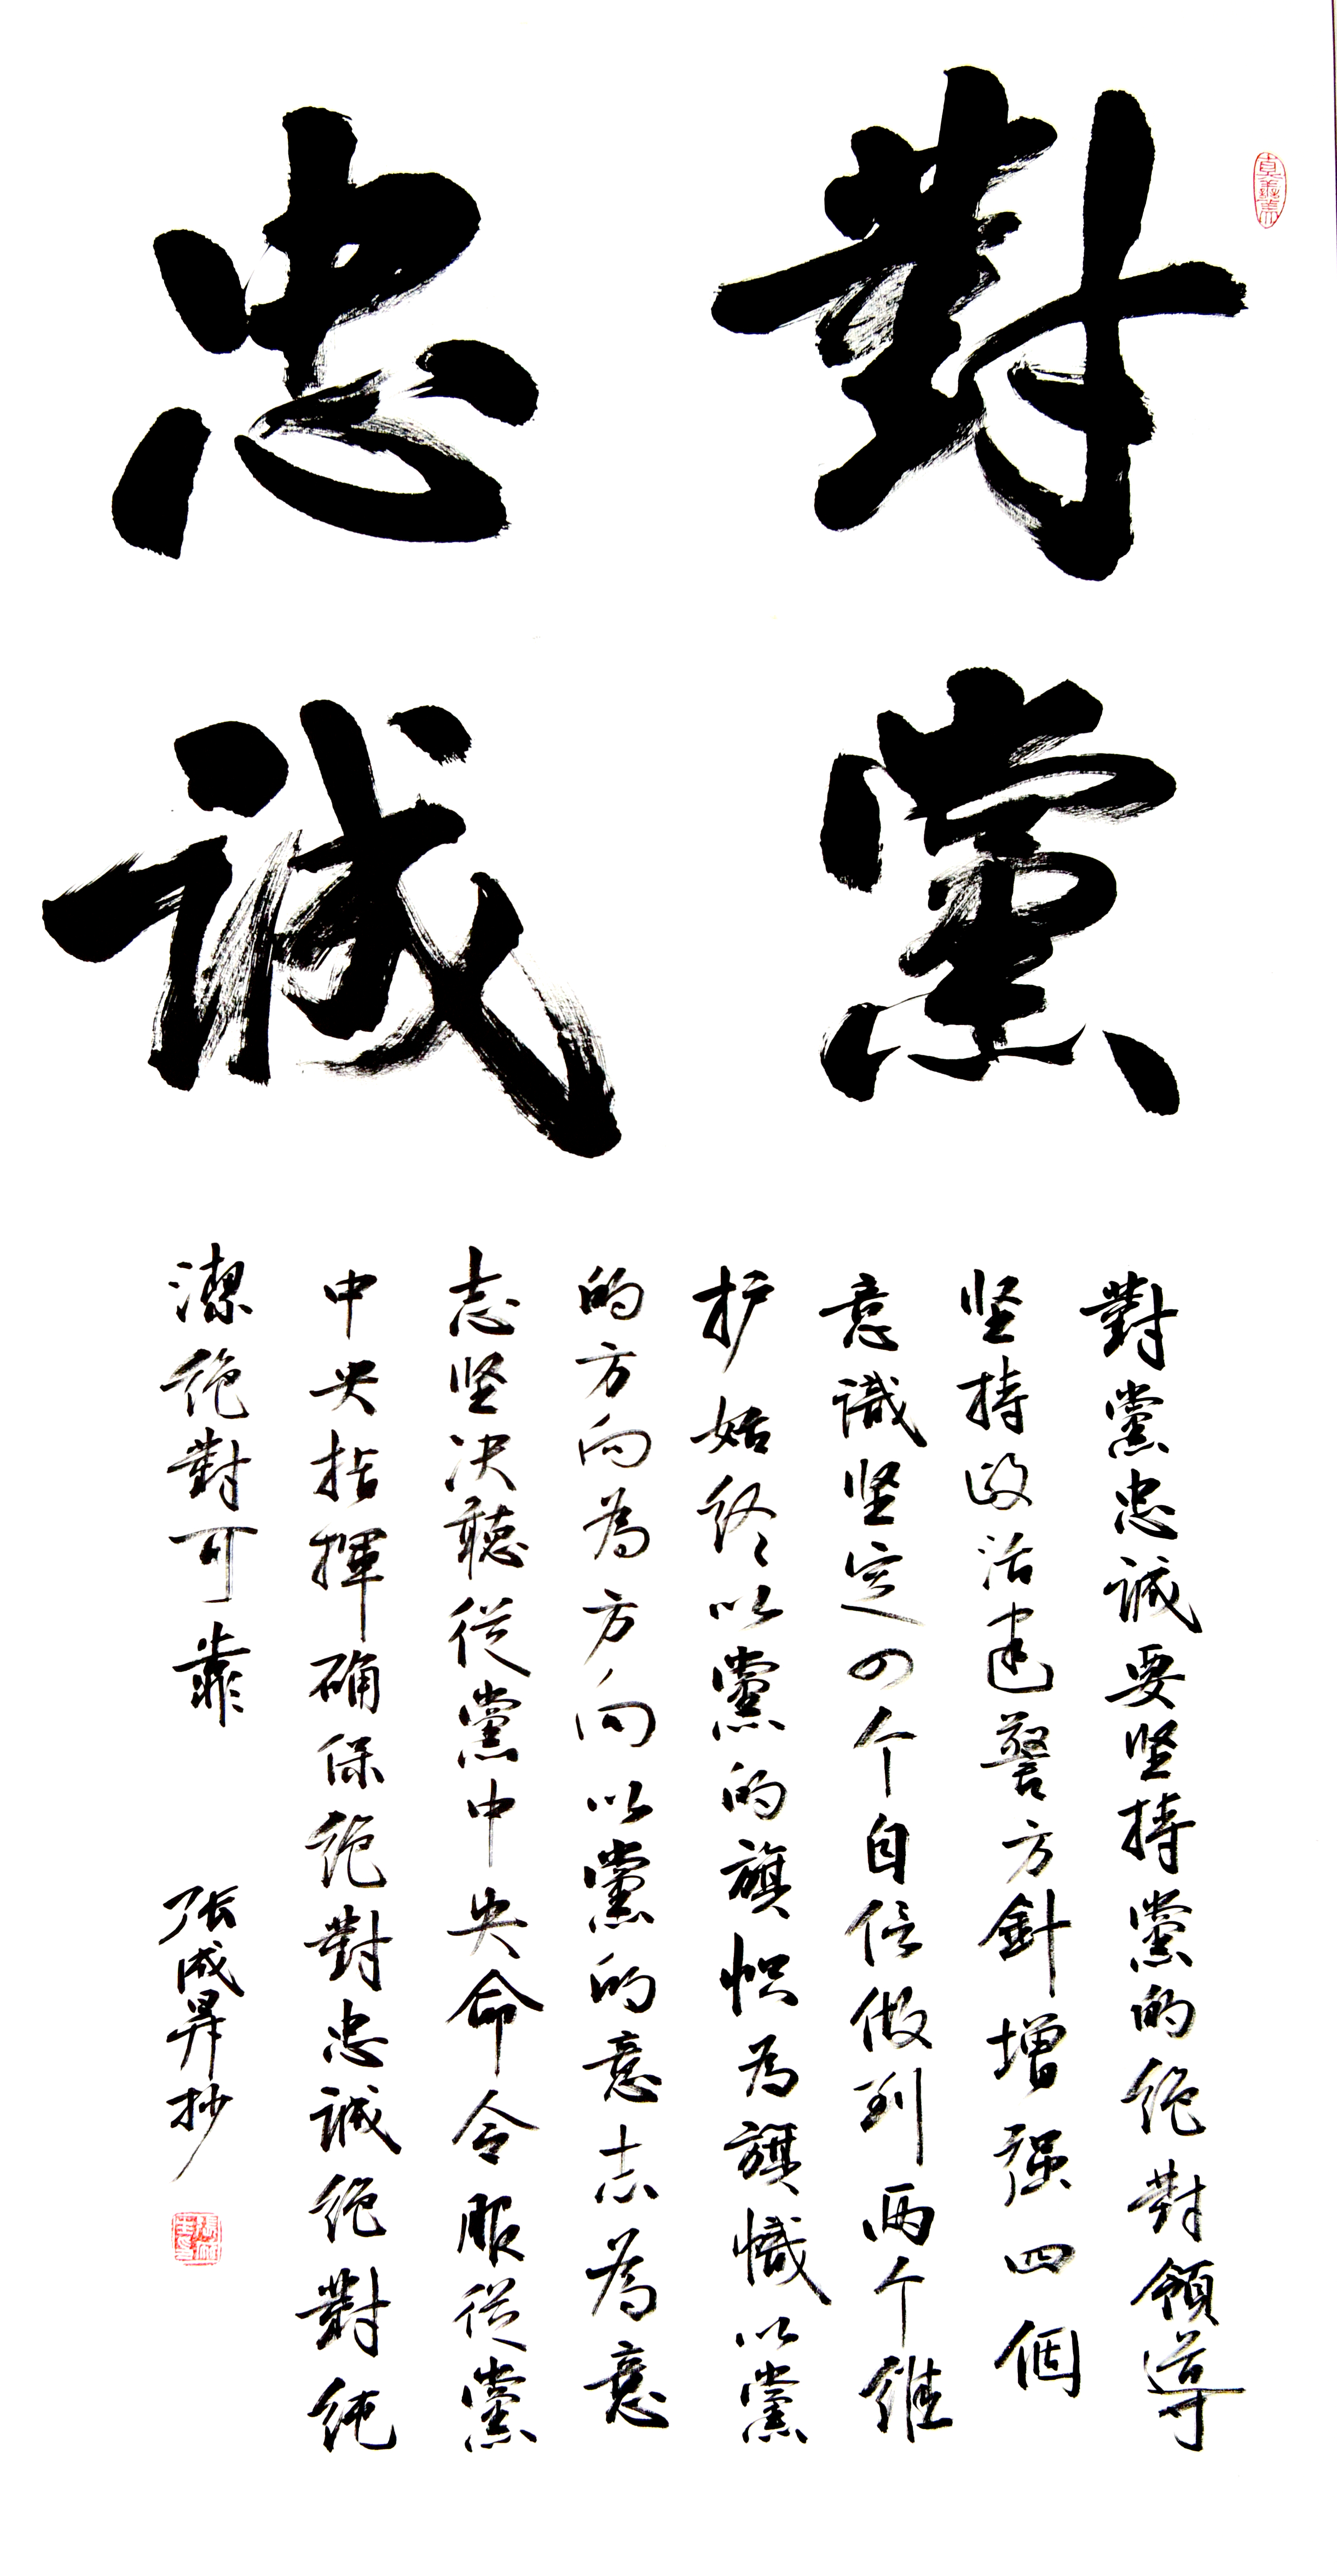 對黨
忠誠
對黨忠誠要坚持黨的绝對領導
坚持政治建警方針增强四個
意識坚定四个自信做到两个维
护始终以黨的旗帜為旗幟以黨
的方向為方向以黨的意志為意
志坚决聽從黨中央命令服從黨
中央指揮确保绝對忠誠绝對純
潔绝對可靠
张成昇抄
真善美